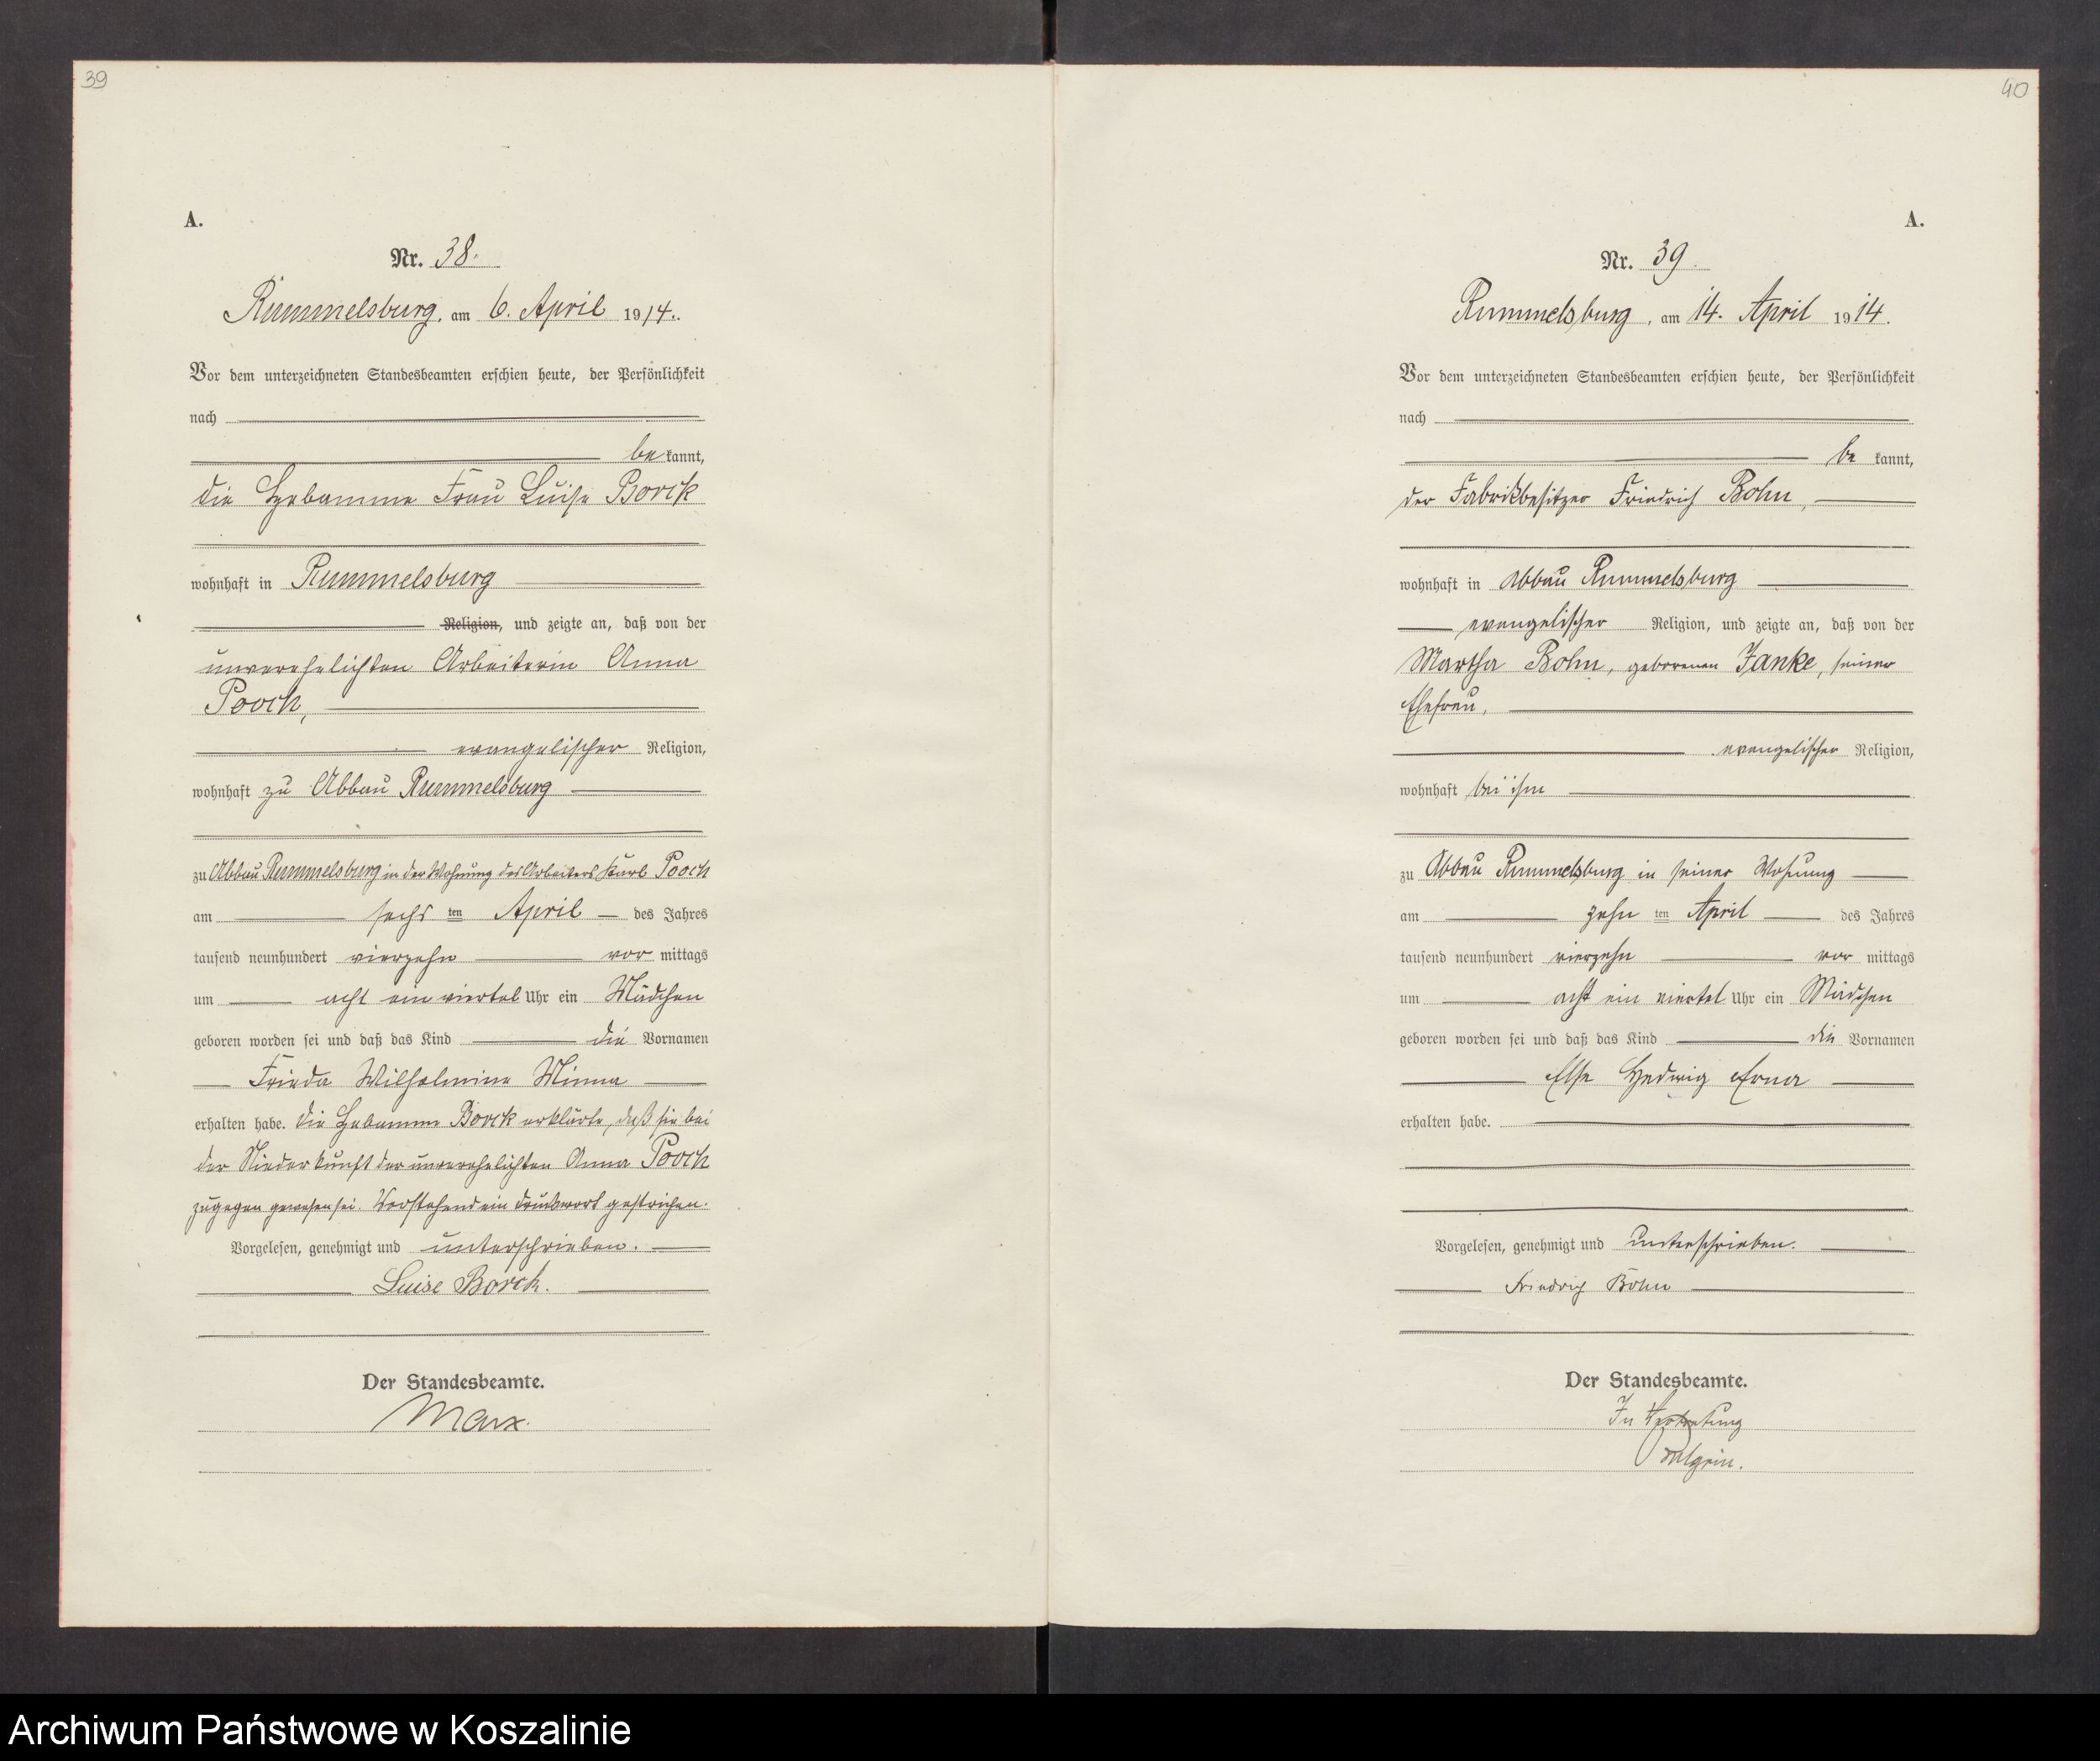 39
A.
Nr. 38.
Rummelsburg, am 6. April 1914.
Vor dem unterzeichneten Standesbeamten erschien heute, der Persönlichkeit
nach
be kannt,
die Hebamme Frau Luise Borck
wohnhaft in Rummelsburg
Religion, und zeigte an, daß von der
unverehelichten Arbeiterin Anna
Pooch,
evangelischer Religion,
wohnhaft zu Abbau Rummelsburg
zu Abbau Rummelsburg in der Wohnung des Arbeiters Karl Pooch
am sechs ten April des Jahres
tausend neunhundert vierzehn vor mittags
um acht ein viertel Uhr ein Mädchen
geboren worden sei und daß das Kind die Vornamen
Frieda Wilhelmine Minna
erhalten habe. Die Hebamme Borck erklärte, daß sie bei
der Niederkunft der unverehelichten Anna Pooch
zugegen gewesen sei. Vorstehend ein Druckwort gestrichen.
Vorgelesen, genehmigt und unterschrieben.
Luise Borck.
Der Standesbeamte.
Marx.
40
A.
Nr. 39.
Rummelsburg, am 14. April 1914.
Vor dem unterzeichneten Standesbeamten erschien heute, der Persönlichkeit
nach
be kannt,
der Fabrikbesitzer Friedrich Bohn,
wohnhaft in Abbau Rummelsburg
evangelischer Religion, und zeigte an, daß von der
Martha Bohn, geborenen Janke, seiner
Ehefrau,
evangelischer Religion,
wohnhaft bei ihm
zu Abbau Rummelsburg in seiner Wohnung
am zehn ten April des Jahres
tausend neunhundert vierzehn vor mittags
um acht ein viertel Uhr ein Mädchen
geboren worden sei und daß das Kind die Vornamen
Else Hedwig Erna
erhalten habe.
Vorgelesen, genehmigt und unterschrieben.
Friedrich Bohn
Der Standesbeamte.
In Vertretung
Archiwum Państwowe w Koszalinie